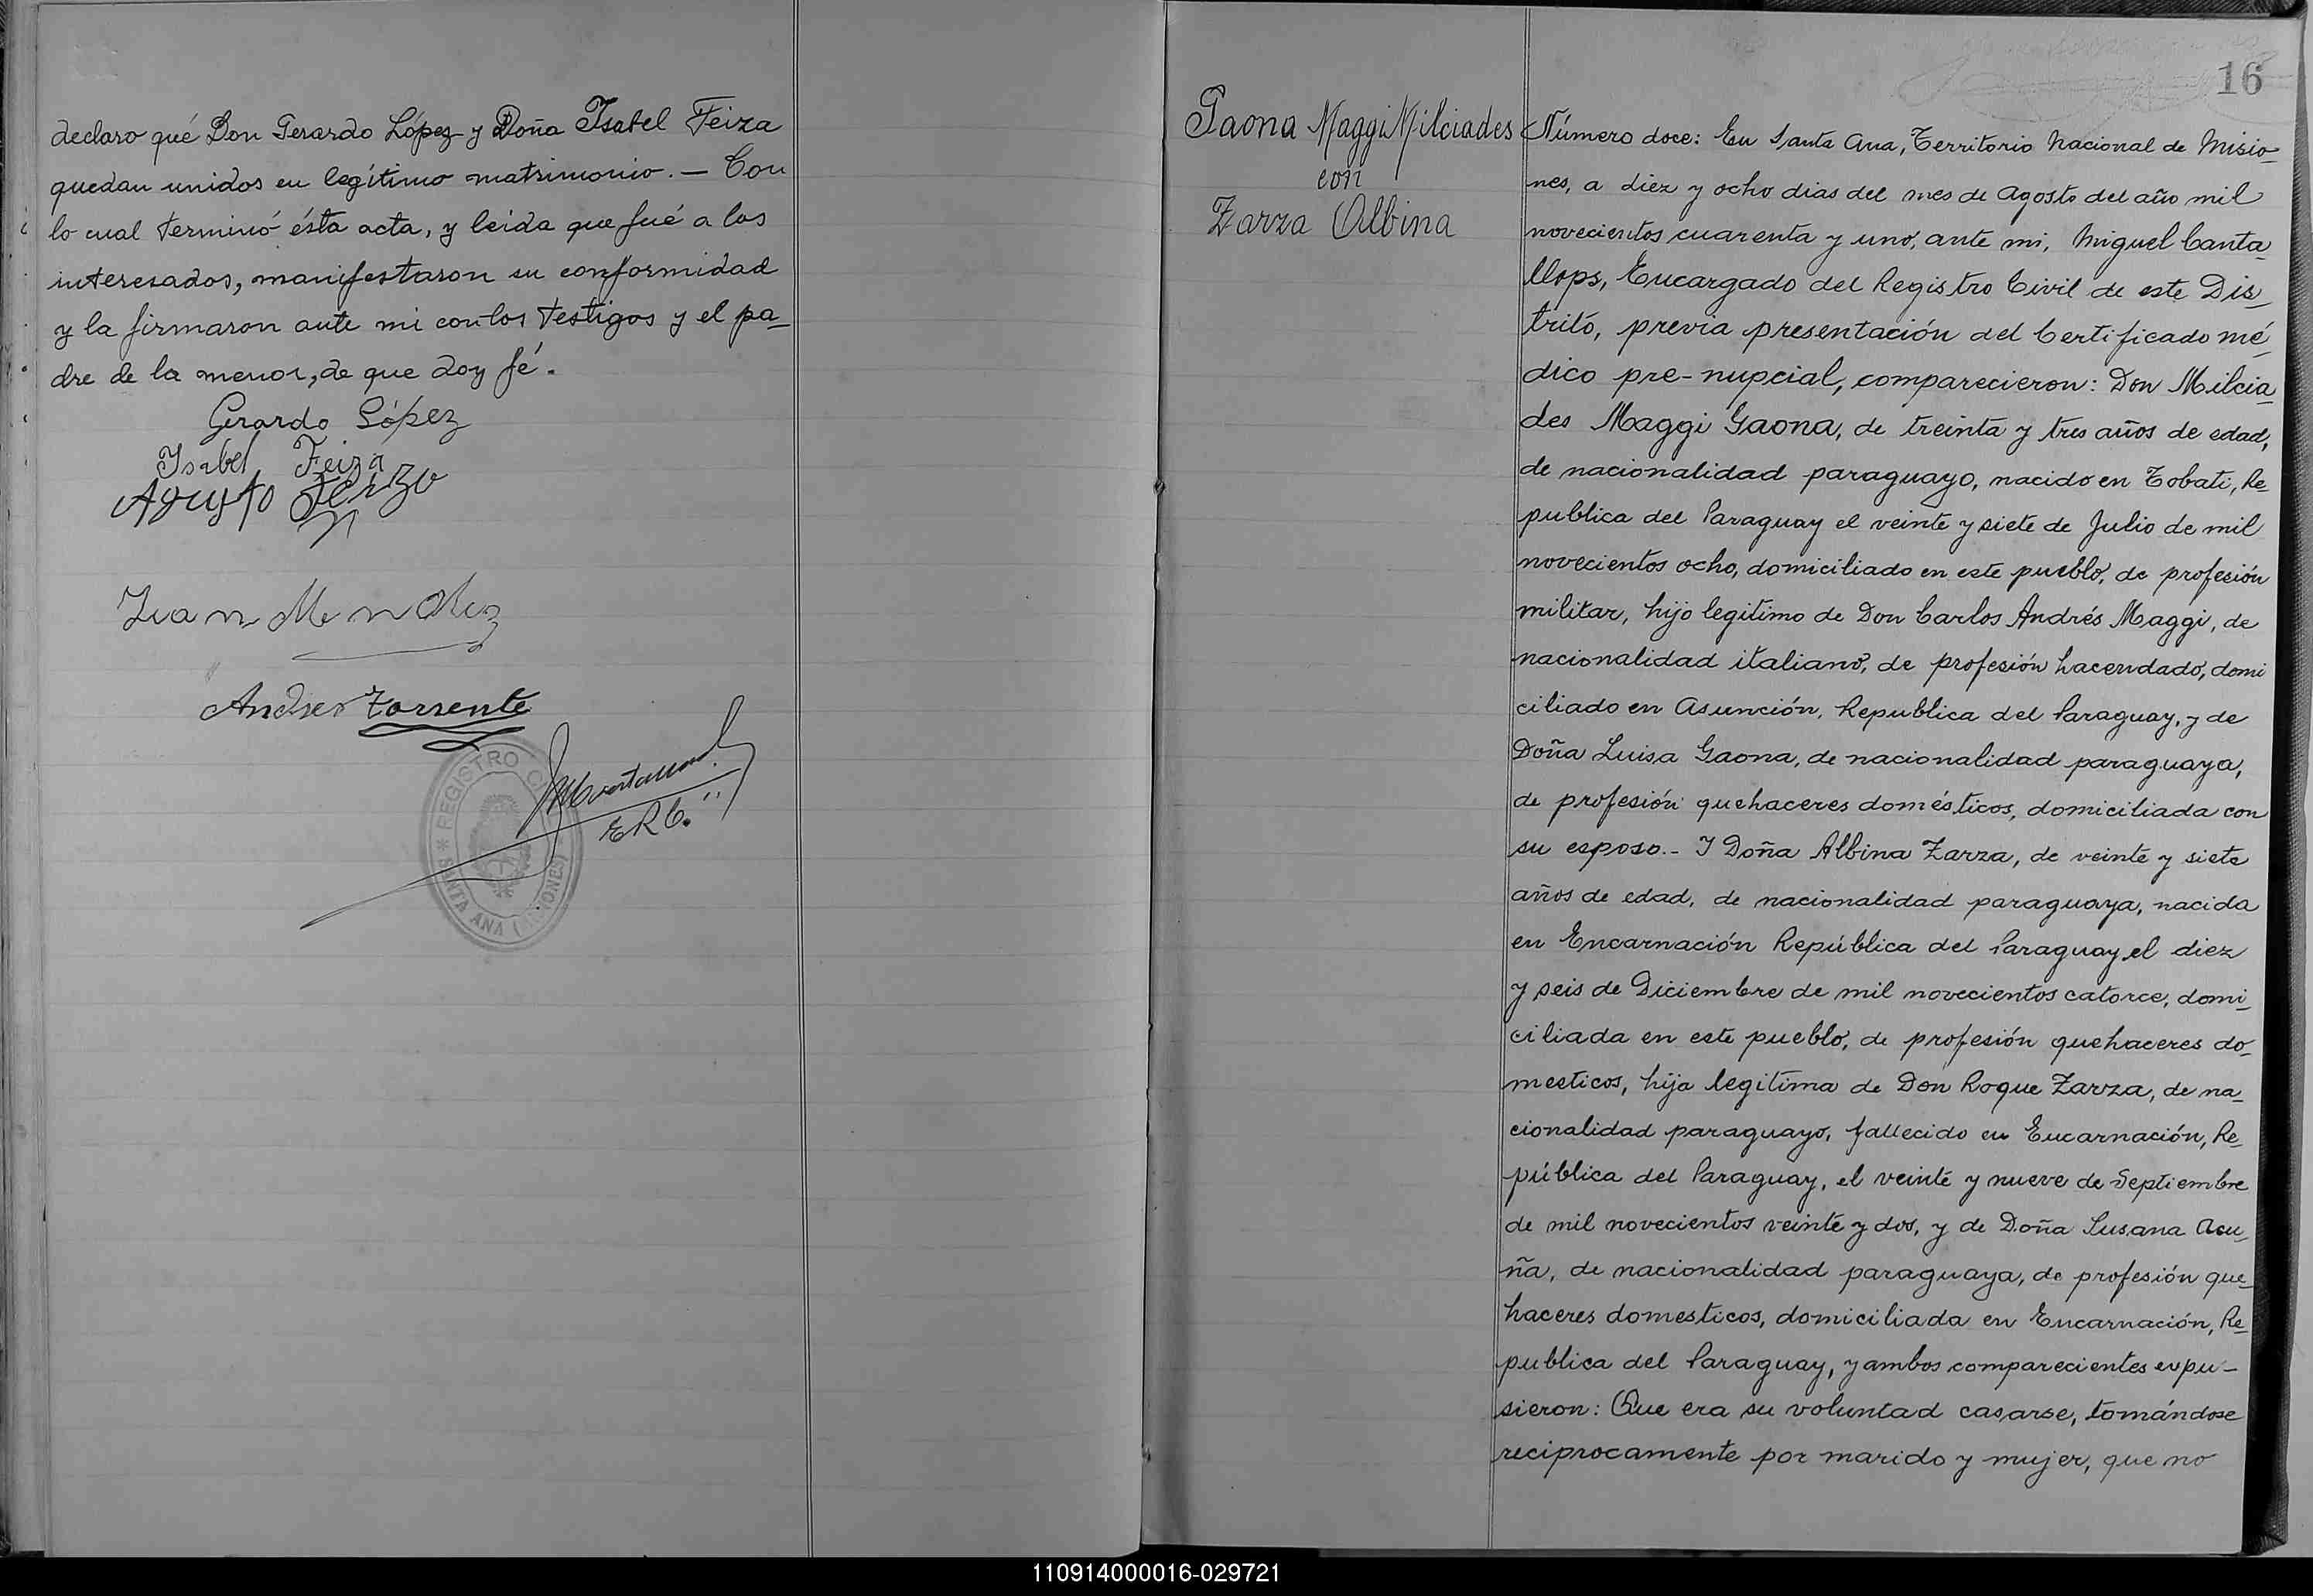 declaro qué Don Gerardo López y Doña Isabel Feiza
quedan unidos en legítimo matrimonio. — Con
lo cual terminó ésta acta, y leida que fué a los
interesados, manifestaron su conformidad
y la firmaron ante mi con los testigos y el pa-
dre de la menor, de que doy fé.
Gerardo López
Isabel Feiza
Agusto Feiza
Juan Mendez
Andres Torrente
E R C.
* REGISTRO CIVIL * SANTA ANA (MISIONES)
16
Gaona Maggi Milciades
con
Zarza Albina
Número doce: En Santa Ana, Territorio Nacional de Misio-
nes, a diez y ocho dias del mes de Agosto del año mil
novecientos cuarenta y uno, ante mi, Miguel Canta-
llops, Encargado del Registro Civil de este Dis-
trito, previa presentación del Certificado mé-
dico pre-nupcial, comparecieron: Don Milcia-
des Maggi Gaona, de treinta y tres años de edad,
de nacionalidad paraguayo, nacido en Tobati, Re-
publica del Paraguay el veinte y siete de Julio de mil
novecientos ocho, domiciliado en este pueblo, de profesión
militar, hijo legitimo de Don Carlos Andrés Maggi, de
nacionalidad italiano, de profesión hacendado, domi
ciliado en Asunción, Republica del Paraguay, y de
Doña Luisa Gaona, de nacionalidad paraguaya,
de profesión quehaceres domésticos, domiciliada con
su esposo.- Y Doña Albina Zarza, de veinte y siete
años de edad, de nacionalidad paraguaya, nacida
en Encarnación República del Paraguay el diez
y seis de Diciembre de mil novecientos catorce, domi-
ciliada en este pueblo, de profesión quehaceres do-
mesticos, hija legitima de Don Roque Zarza, de na-
cionalidad paraguayo, fallecido en Encarnación, Re-
pública del Paraguay, el veinte y nueve de Septiembre
de mil novecientos veinte y dos, y de Doña Susana Acu-
ña, de nacionalidad paraguaya, de profesión que-
haceres domesticos, domiciliada en Encarnación, Re-
publica del Paraguay, y ambos comparecientes expu-
sieron: Que era su voluntad casarse, tomándose
reciprocamente por marido y mujer, que no
110914000016-029721